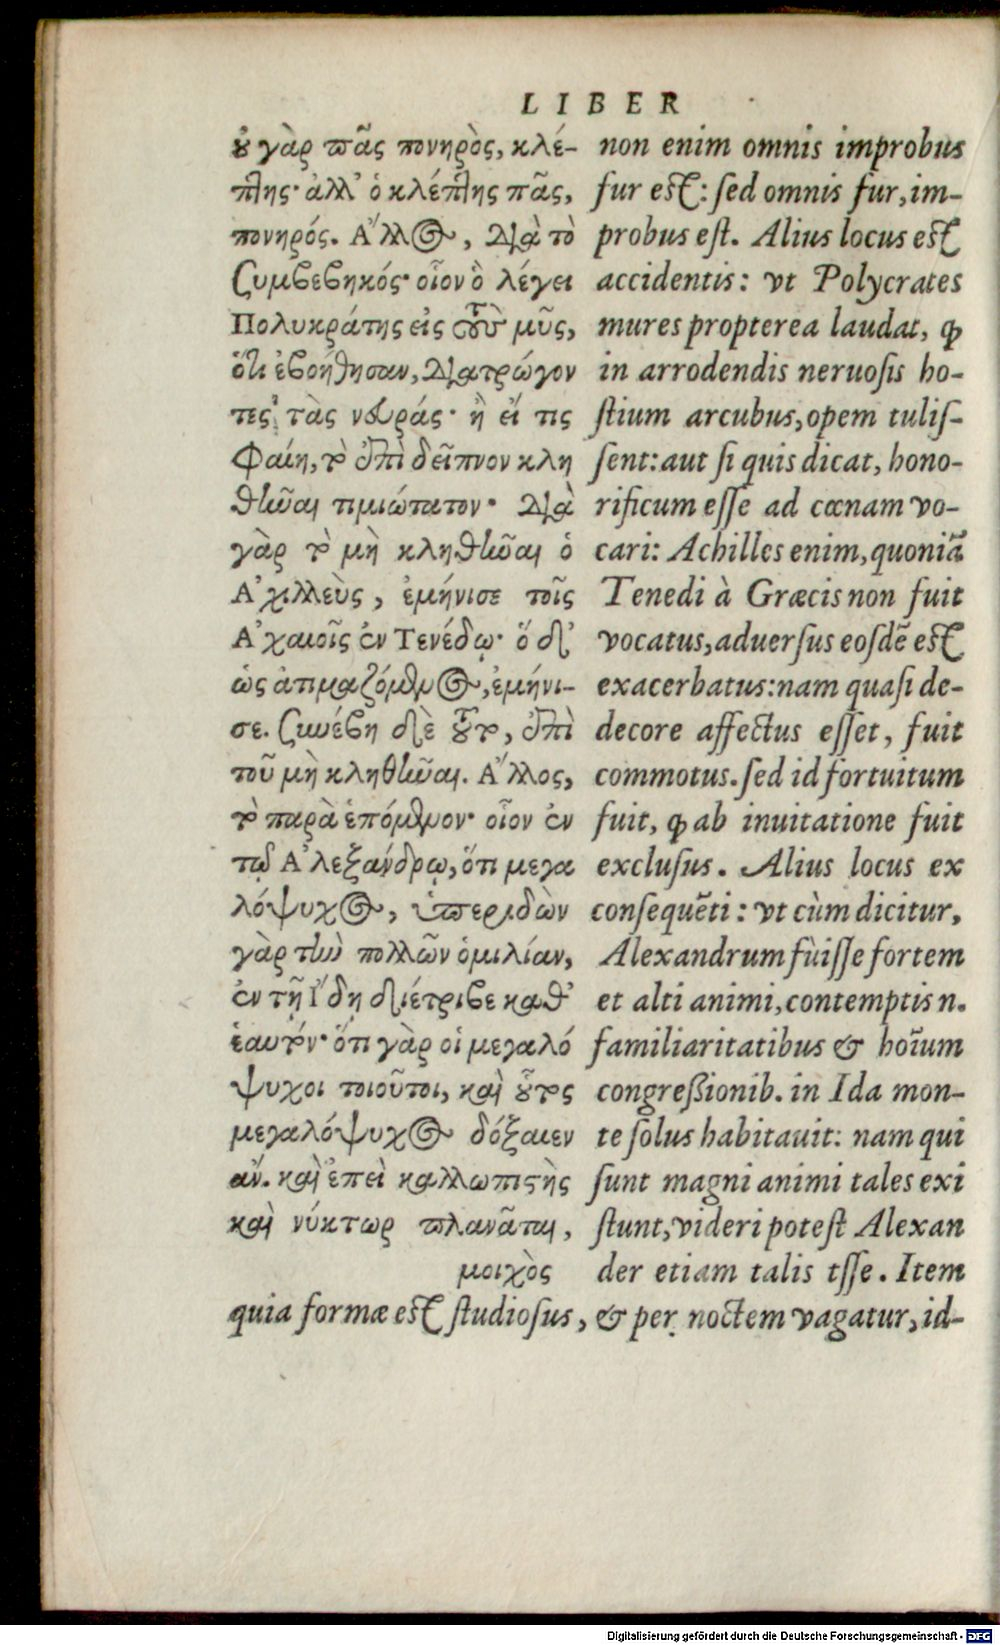 LIBER
οὐ γὰρ πᾶς πονηρὸς, κλέ-
πτης· ἀλλ' ὁ κλέπτης πᾶς,
πονηρός. Α῎λλος, διὰ τὸ
συμβεβηκός· οἷον ὃ λέγει
Πολυκράτης εἰς τοὺς μῦς,
ὅτι ἐβοήθησαν, διατρώγον
τες τὰς νευράς· ἢ εἴ τις
φαίη, τὸ ἐπὶ δεῖπνον κλη
θῆναι τιμιώτατον· διὰ
γὰρ τὸ μὴ κληθῆναι ὁ
Α᾿χιλλεὺς, ἐμήνισε τοῖς
Α᾿χαιοῖς ἐν Τενέδῳ· ὁ δ'
ὡς ἀτιμαζόμενος, ἐμήνι-
σε. συνέβη δὲ τοῦτο, ἐπὶ
τοῦ μὴ κληθῆναι. Α῎λλος,
τὸ παρὰ ἑπόμενον· οἷον ἐν
τῷ Α᾿λεξάνδρῳ, ὅτι μεγα
λόψυχος, ὑπεριδὼν
γὰρ τὴν πολλῶν ὁμιλίαν,
ἐν τῇ Ι῎δῃ διέτριβε καθ'
ἑαυτόν· ὅτι γὰρ οἱ μεγαλό
ψυχοι τοιοῦτοι, καὶ οὗτος
μεγαλόψυχος δόξαιεν
ἄν. καὶ ἐπεὶ καλλωπιστὴς
καὶ νύκτωρ πλανᾶται,
μοιχὸς
non enim omnis improbus
fur est: sed omnis fur, im-
probus est. Alius locus est
accidentis: vt Polycrates
mures propterea laudat, ꝙ
in arrodendis neruosis ho-
stium arcubus, opem tulis-
sent: aut si quis dicat, hono-
rificum esse ad cœnam vo-
cari: Achilles enim, quoniã
Tenedi à Græcis non fuit
vocatus, aduersus eosdẽ est
exacerbatus: nam quasi de-
decore affectus esset, fuit
commotus. sed id fortuitum
fuit, ꝙ ab inuitatione fuit
exclusus. Alius locus ex
consequẽti: vt cùm dicitur,
Alexandrum fuisse fortem
et alti animi, contemptis n.
familiaritatibus & hoĩum
congreßionib. in Ida mon-
te solus habitauit: nam qui
sunt magni animi tales exi
stunt, videri potest Alexan
der etiam talis tsse. Item
quia formæ est studiosus, & per noctem vagatur, id-
Digitalisierung gefördert durch die Deutsche Forschungsgemeinschaft - DFG